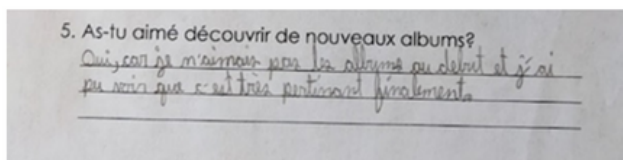 5. As-tu aimé découvrir de nouveaux albums?
Oui, car je n'aimais pas les albums au debut et j'ai
pu voir que c'est très pertinant finalement.